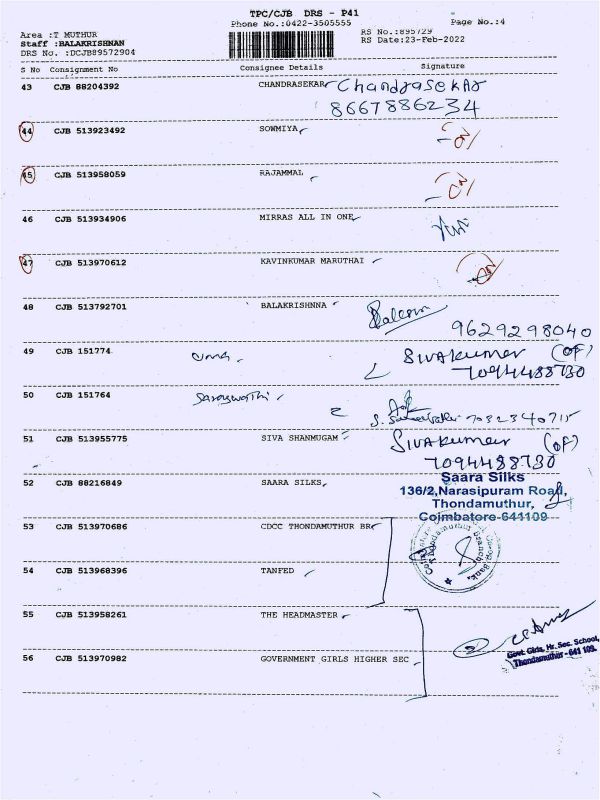 TPC/CJB DRS - P41
Phone No.:0422-3505555 Page No.:4
Area :T MUTHUR RS No.:895729
Staff :BALAKRISHNAN RS Date:23-Feb-2022
DRS No. :DCJB89572904
S No Consignment No Consignee Details Signature
43 CJB 88204392 CHANDRASEKAR Chandrasekar
8667886234
44 CJB 513923492 SOWMIYA
45 CJB 513958059 RAJAMMAL
46 CJB 513934906 MIRRAS ALL IN ONE
47 CJB 513970612 KAVINKUMAR MARUTHAI
48 CJB 513792701 BALAKRISHNNA
9629298040
49 CJB 151774 uma SIVAkumar (OF)
7094488730
50 CJB 151764 Saraswathi
51 CJB 513955775 SIVA SHANMUGAM SIVAkumar (OF)
7094488730
52 CJB 88216849 SAARA SILKS Saara Silks
136/2,Narasipuram Road,
Thondamuthur,
Coimbatore-641109
53 CJB 513970686 CDCC THONDAMUTHUR BR
54 CJB 513968396 TANFED
55 CJB 513958261 THE HEADMASTER
56 CJB 513970982 GOVERNMENT GIRLS HIGHER SEC
Govt. Girls, Hr. Sec. School,
Thondamuthur - 641 109.